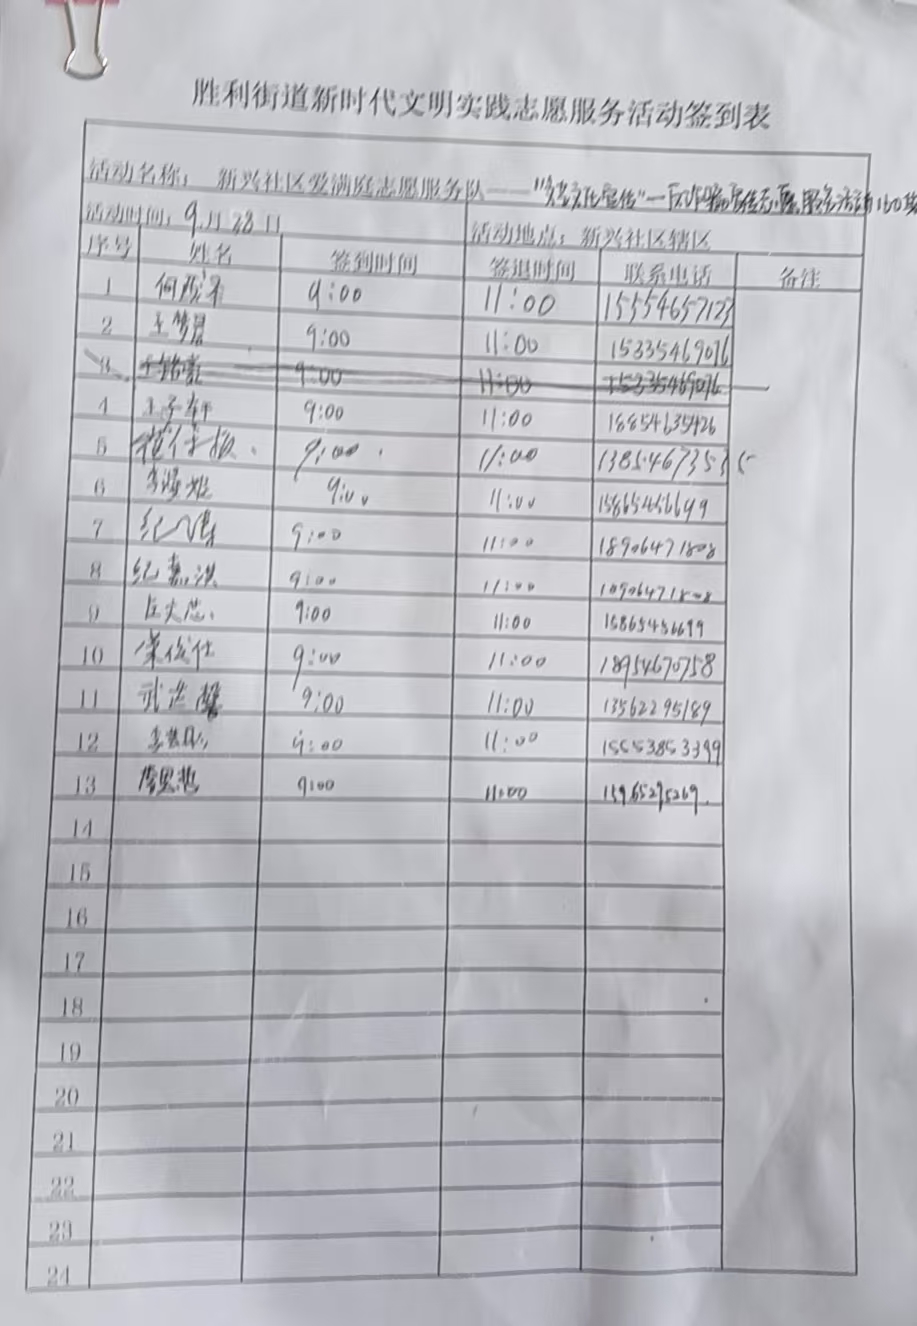 胜利街道新时代文明实践志愿服务活动签到表
活动名称：新兴社区爱满庭志愿服务队——"文化宣传"—反诈骗宣传志愿服务活动
活动时间：9月28日 活动地点：新兴社区辖区
序号 姓名 签到时间 签退时间 联系电话 备注
1 何 9:00 11:00 15554657123
2 王梦 9:00 11:00 15335469076
3 王铭豪 9:00 11:00 15335469076
4 王子轩 9:00 11:00 18854635426
5 9:00 11:00 13854673535
6 李 9:00 11:00 15865456699
7 纪 9:00 11:00 18906471808
8 纪嘉淇 9:00 11:00 18906471808
9 9:00 11:00 15865456699
10 9:00 11:00 18954670758
11 武 9:00 11:00 13562295189
12 李 9:00 11:00 15553853399
13 9:00 11:00
14
15
16
17
18
19
20
21
22
23
24